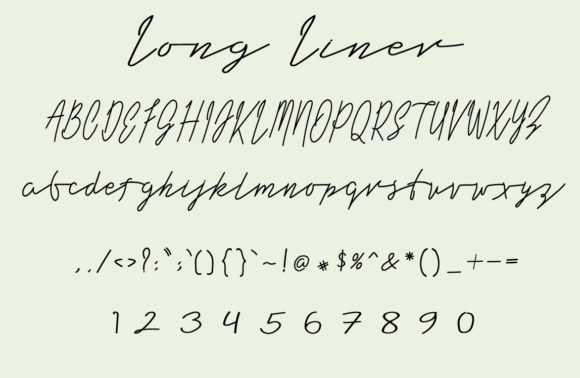 Long Liner
ABCDEFGHIJKLMNOPQRSTUVWXYZ
abcdefghijklmnopqrstuvwxyz
,./<>?:“;‘(){}`~!@#$%^&*()_+-=
1 2 3 4 5 6 7 8 9 0